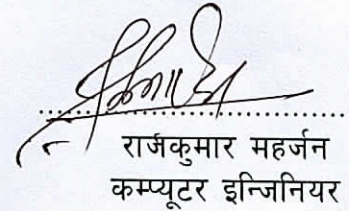 राजकुमार महर्जन
कम्प्यूटर इन्जिनियर